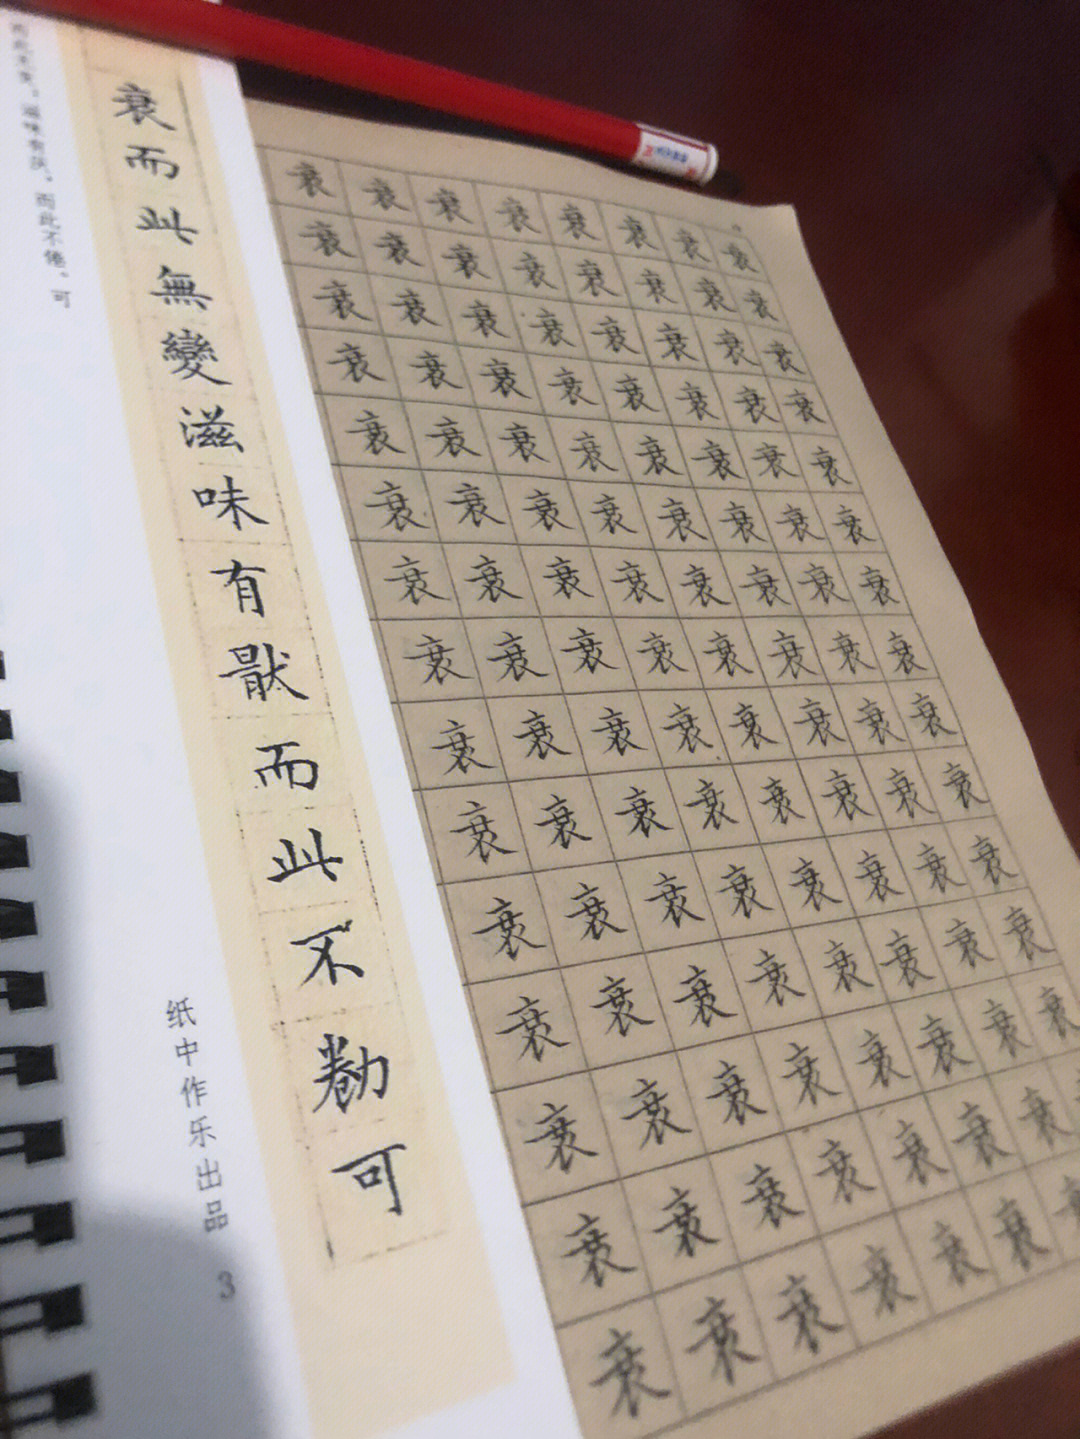 而此无变。滋味有厌。而此不倦。可
衰而此無變滋味有猒而此不勌可
纸中作乐出品 3
衰衰衰衰衰衰衰衰
衰衰衰衰衰衰衰衰
衰衰衰衰衰衰衰衰
衰衰衰衰衰衰衰衰
衰衰衰衰衰衰衰衰
衰衰衰衰衰衰衰衰
衰衰衰衰衰衰衰衰
衰衰衰衰衰衰衰衰
衰衰衰衰衰衰衰衰
衰衰衰衰衰衰衰衰
衰衰衰衰衰衰衰衰
衰衰衰衰衰衰衰衰
衰衰衰衰衰衰衰衰
衰衰衰衰衰衰衰
衰衰衰衰衰衰衰